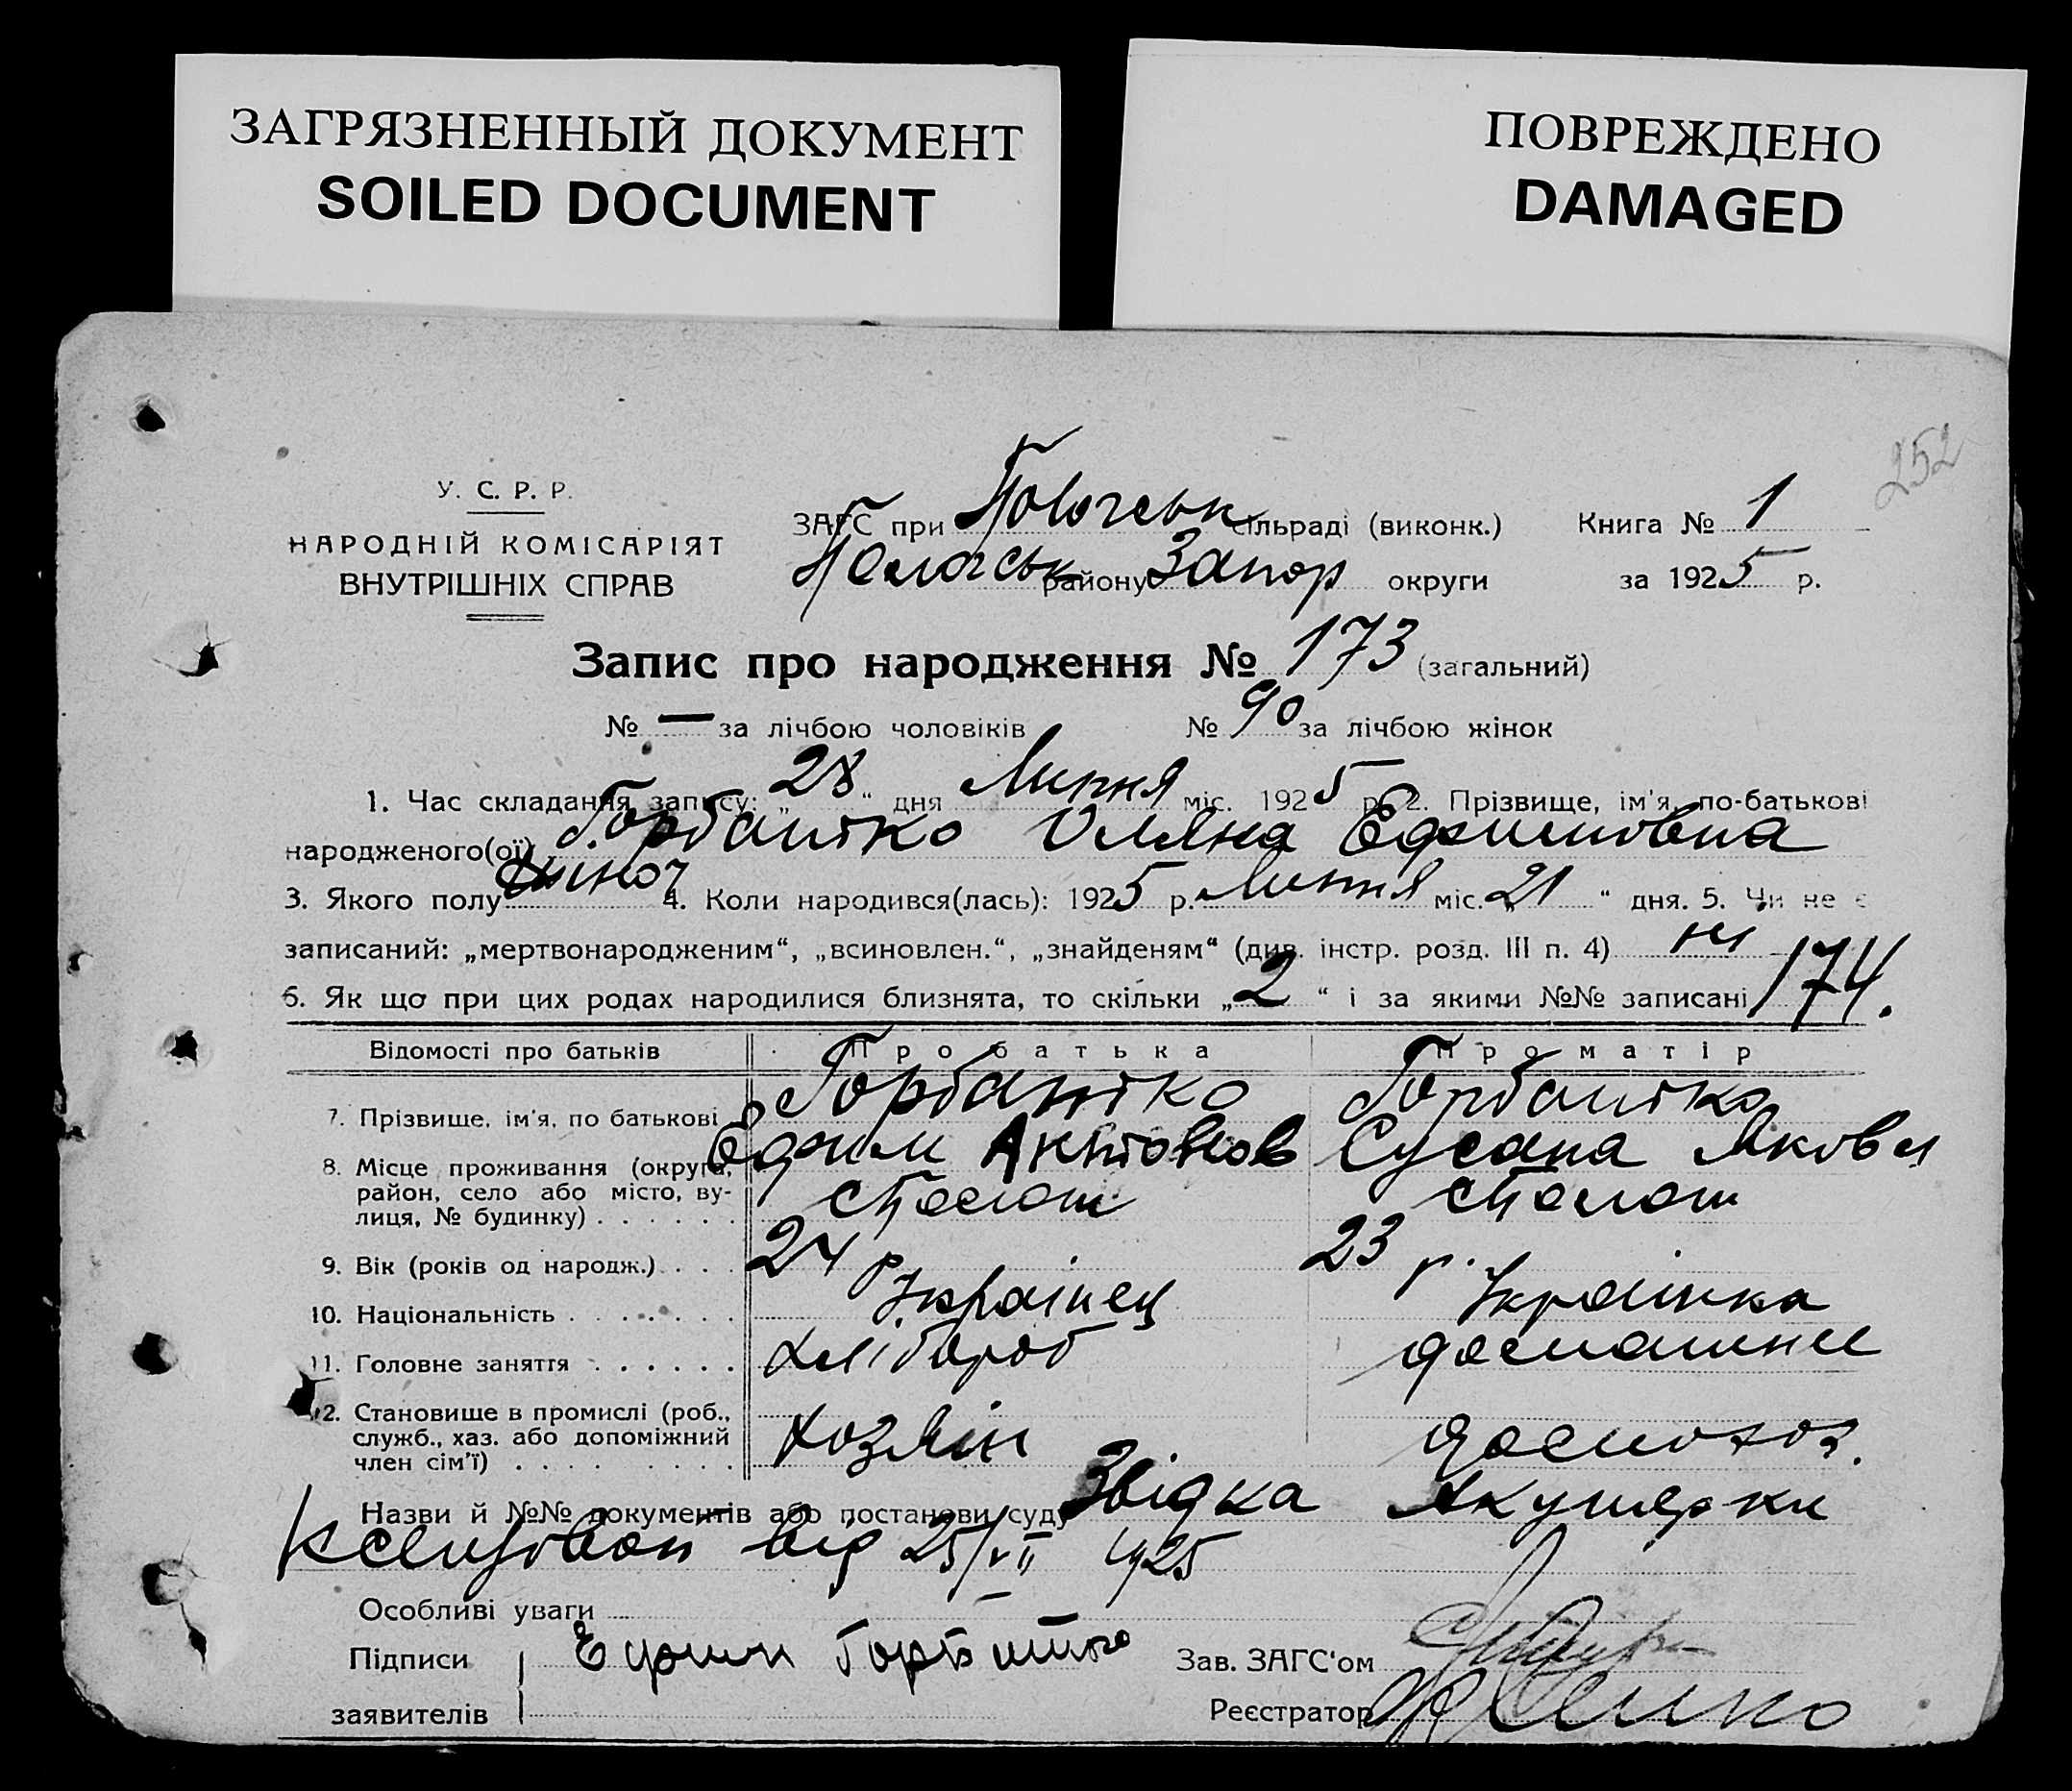 ЗАГРЯЗНЕННЫЙ ДОКУМЕНТ
SOILED DOCUMENT
ПОВРЕЖДЕНО
DAMAGED
252
У. С. Р. Р.
НАРОДНІЙ КОМІСАРІЯТ
ВНУТРІШНІХ СПРАВ
ЗАГС при Пологськ сільраді (виконк.) Книга № 1
Пологськ району Запор округи за 1925 р.
Запис про народження № 173 (загальний)
№ — за лічбою чоловіків № 90 за лічбою жінок
1. Час складання запису: „28“ дня Липня міс. 1925 р. 2. Прізвище, ім'я, по-батькові
народженого(ої) Горбатко Уляна Ефимовна
3. Якого полу жіноч 4. Коли народився(лась): 1925 р. Липня міс. „21“ дня. 5. Чи не є
записаний: „мертвонародженим“, „всиновлен.“, „знайденям“ (див. інстр. розд. III п. 4) ні
6. Як що при цих родах народилися близнята, то скільки „2“ і за якими №№ записані 174.
Відомості про батьків Про батька Про матір
7. Прізвище, ім'я, по батькові Горбатко Горбатко
Ефим Антонов Сусана Яковл
8. Місце проживання (округа,
район, село або місто, ву-
лиця, № будинку) . . . . . . с Пологи с Пологи
9. Вік (років од народж.) . . . 24 р 23 р.
10. Національність . . . . . . . Українец Українка
11. Головне заняття . . . . . . Хлібороб домашне
12. Становище в промислі (роб.,
служб., хаз. або допоміжний
член сім'ї) . . . . . . . . . Хозяін домохоз.
Назви й №№ документів або постанови суду Звідка Акушерки
від 25/VII 1925
Особливі уваги —
Підписи Ефим Горбатко Зав. ЗАГС'ом
заявителів Реєстратор